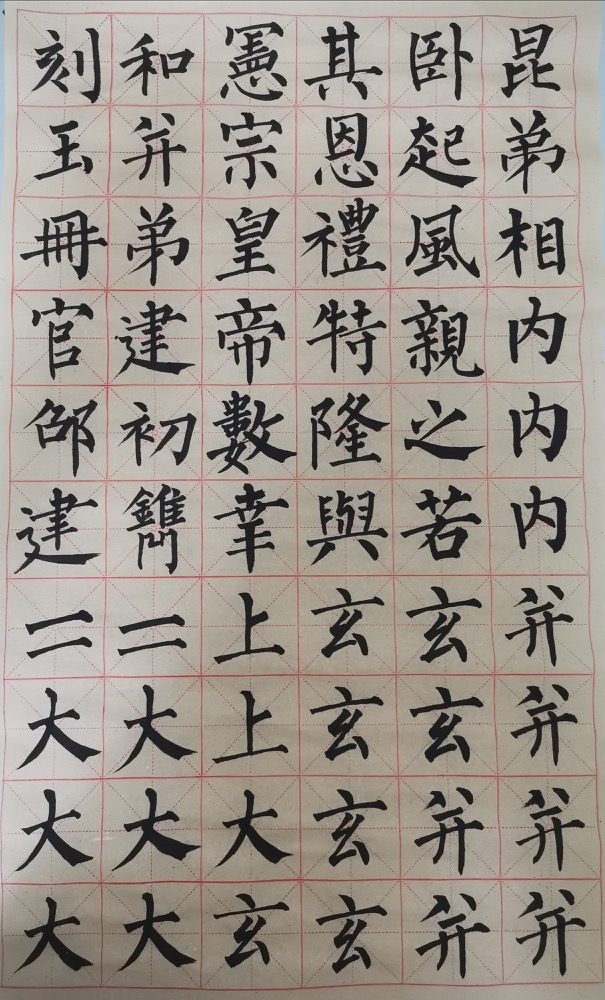 昆弟相内内内并并并并
卧起風親之若玄玄并并
其恩禮特隆與玄玄玄玄
憲宗皇帝數幸上上大玄
和并弟建初鐫二大大大
刻玉冊官邵建二大大大